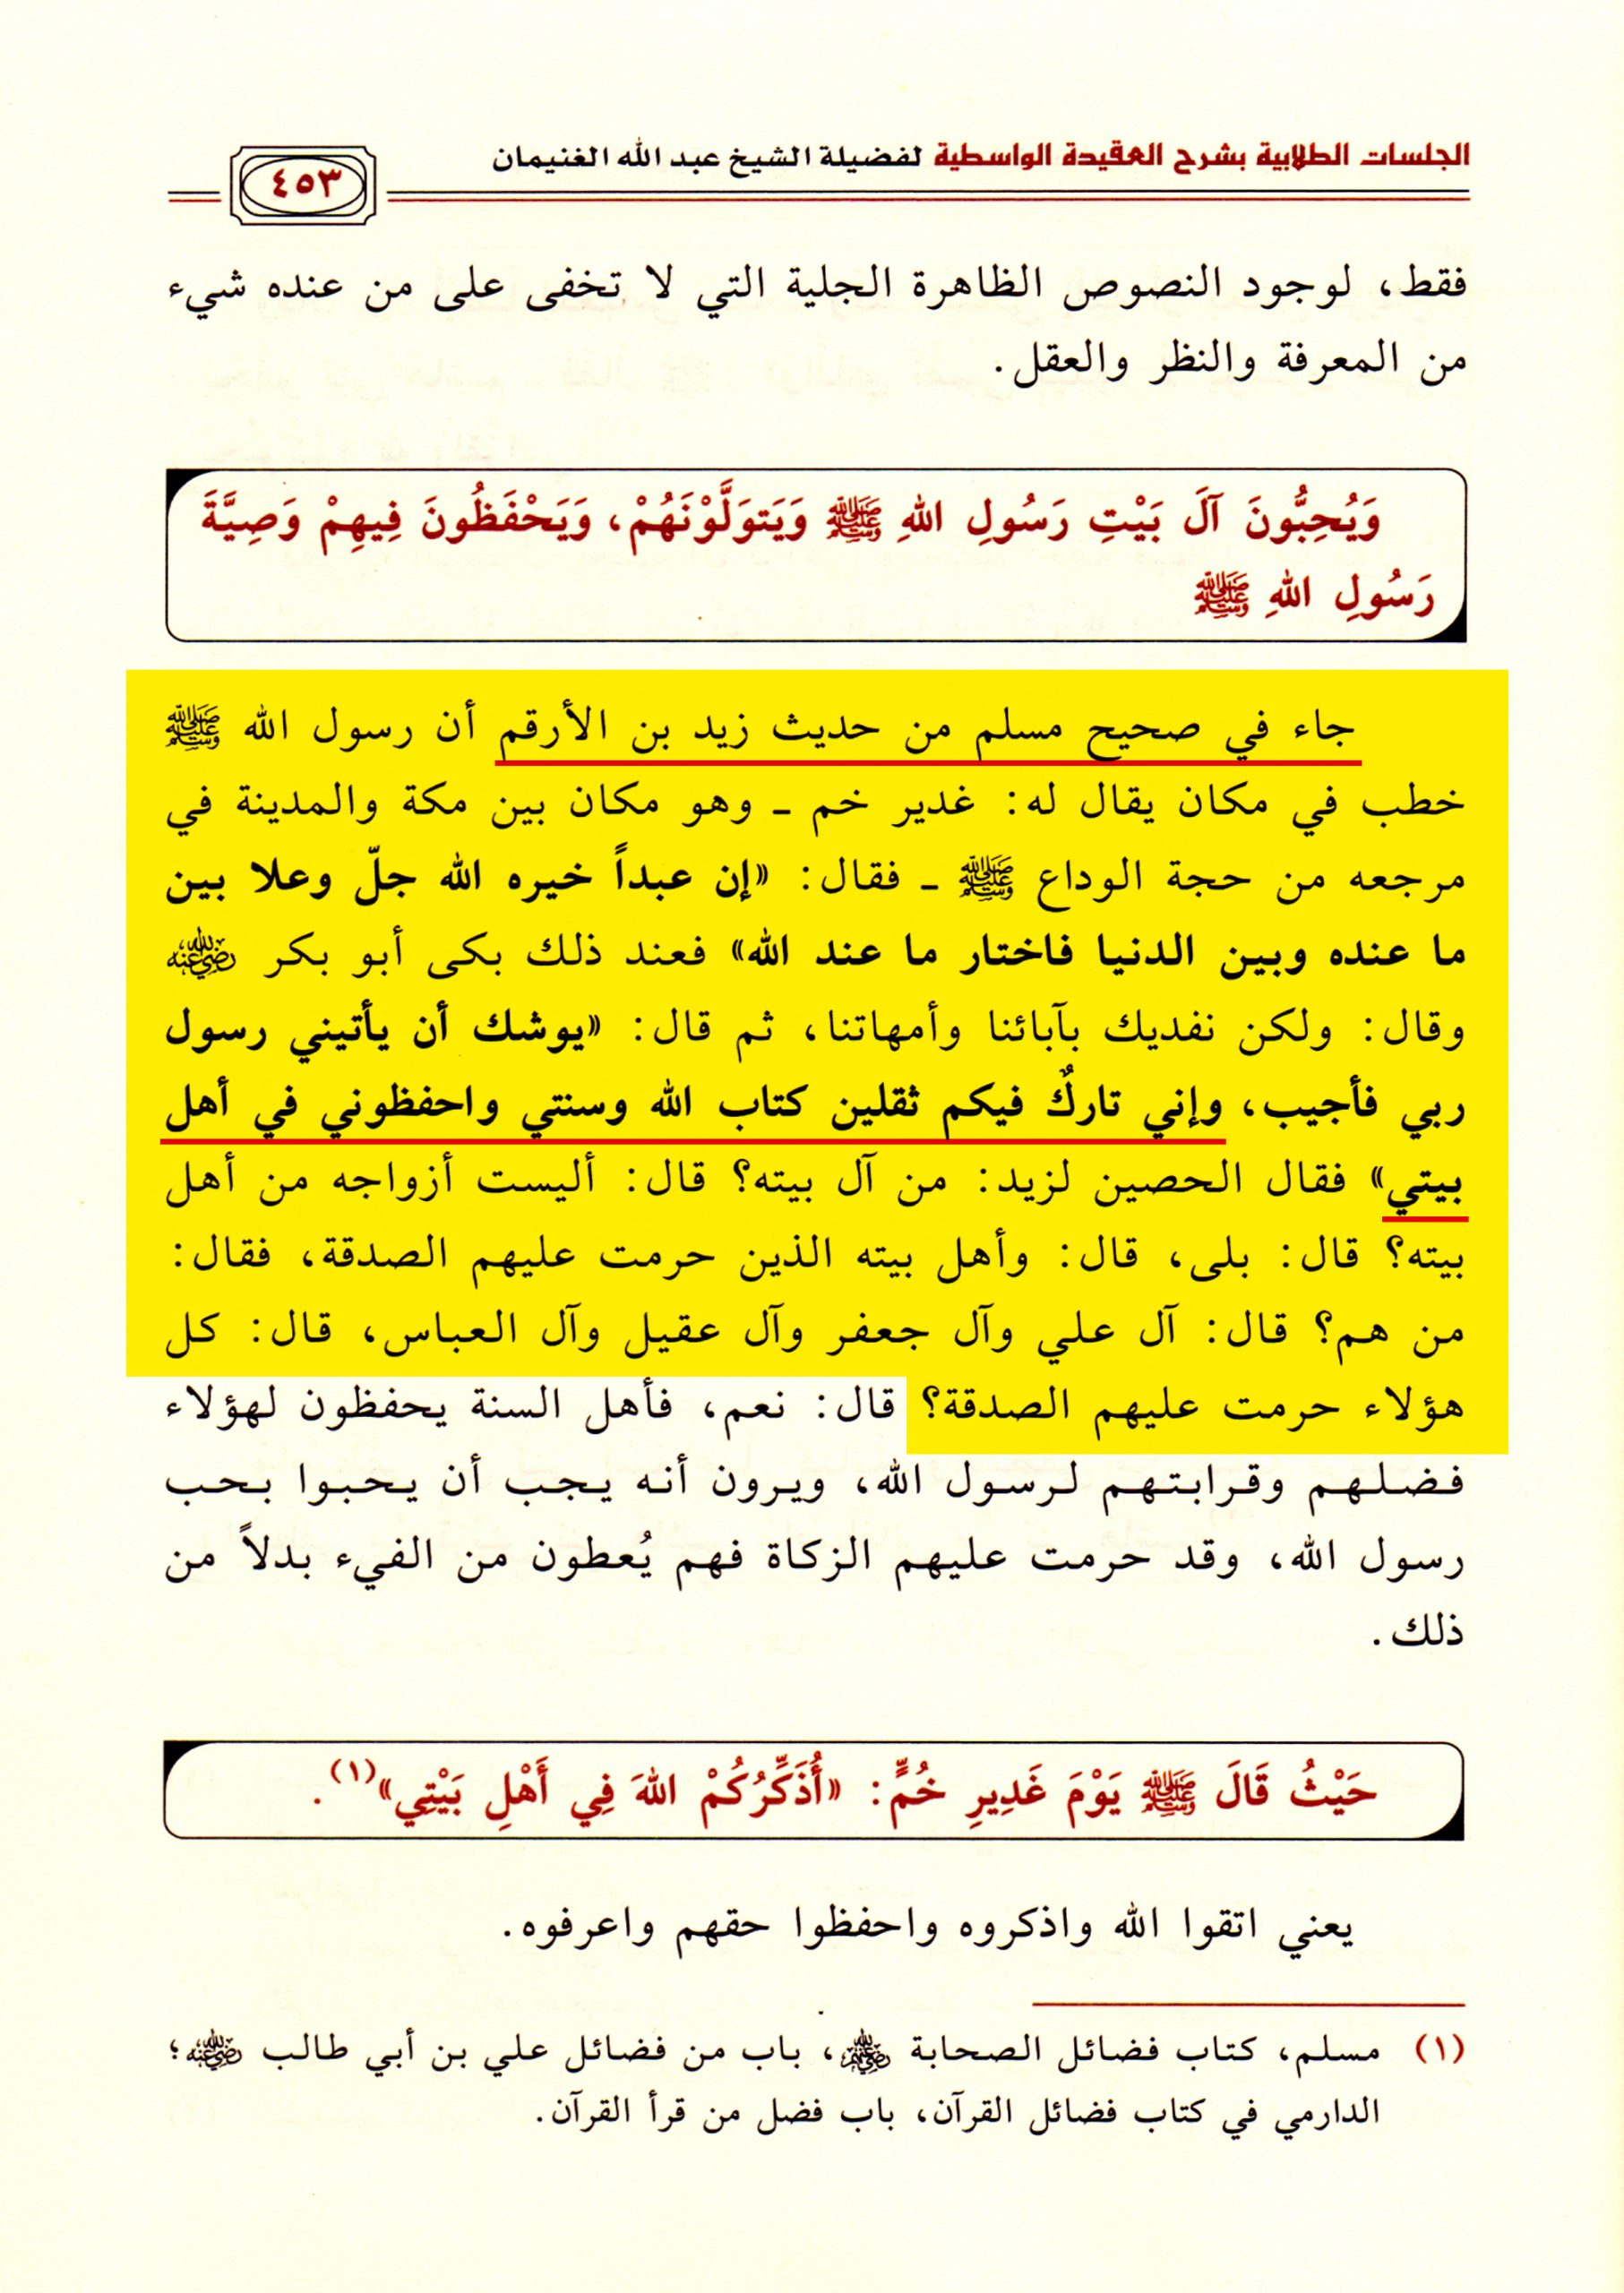 الجلسات الطلابية بشرح العقيدة الواسطية لفضيلة الشيخ عبد الله الغنيمان
٤٥٣
فقط، لوجود النصوص الظاهرة الجلية التي لا تخفى على من عنده شيء
من المعرفة والنظر والعقل.
وَيُحِبُّونَ آلَ بَيْتِ رَسُولِ اللهِ ﷺ وَيَتوَلَّوْنَهُمْ، وَيَحْفَظُونَ فِيهِمْ وَصِيَّةَ
رَسُولِ اللهِ ﷺ
جاء في صحيح مسلم من حديث زيد بن الأرقم أن رسول الله ﷺ
خطب في مكان يقال له: غدير خم ـ وهو مكان بين مكة والمدينة في
مرجعه من حجة الوداع ﷺ ـ فقال: «إن عبداً خيره الله جلّ وعلا بين
ما عنده وبين الدنيا فاختار ما عند الله» فعند ذلك بكى أبو بكر رضي الله عنه
وقال: ولكن نفديك بآبائنا وأمهاتنا، ثم قال: «يوشك أن يأتيني رسول
ربي فأجيب، وإني تاركٌ فيكم ثقلين كتاب الله وسنتي واحفظوني في أهل
بيتي» فقال الحصين لزيد: من آل بيته؟ قال: أليست أزواجه من أهل
بيته؟ قال: بلى، قال: وأهل بيته الذين حرمت عليهم الصدقة، فقال:
من هم؟ قال: آل علي وآل جعفر وآل عقيل وآل العباس، قال: كل
هؤلاء حرمت عليهم الصدقة؟ قال: نعم، فأهل السنة يحفظون لهؤلاء
فضلهم وقرابتهم لرسول الله، ويرون أنه يجب أن يحبوا بحب
رسول الله، وقد حرمت عليهم الزكاة فهم يُعطون من الفيء بدلاً من
ذلك.
حَيْثُ قَالَ ﷺ يَوْمَ غَدِيرِ خُمٍّ: «أُذَكِّرُكُمْ اللهَ فِي أَهْلِ بَيْتِي»(١).
يعني اتقوا الله واذكروه واحفظوا حقهم واعرفوه.
(١) مسلم، كتاب فضائل الصحابة رضي الله عنهم، باب من فضائل علي بن أبي طالب رضي الله عنه؛
الدارمي في كتاب فضائل القرآن، باب فضل من قرأ القرآن.